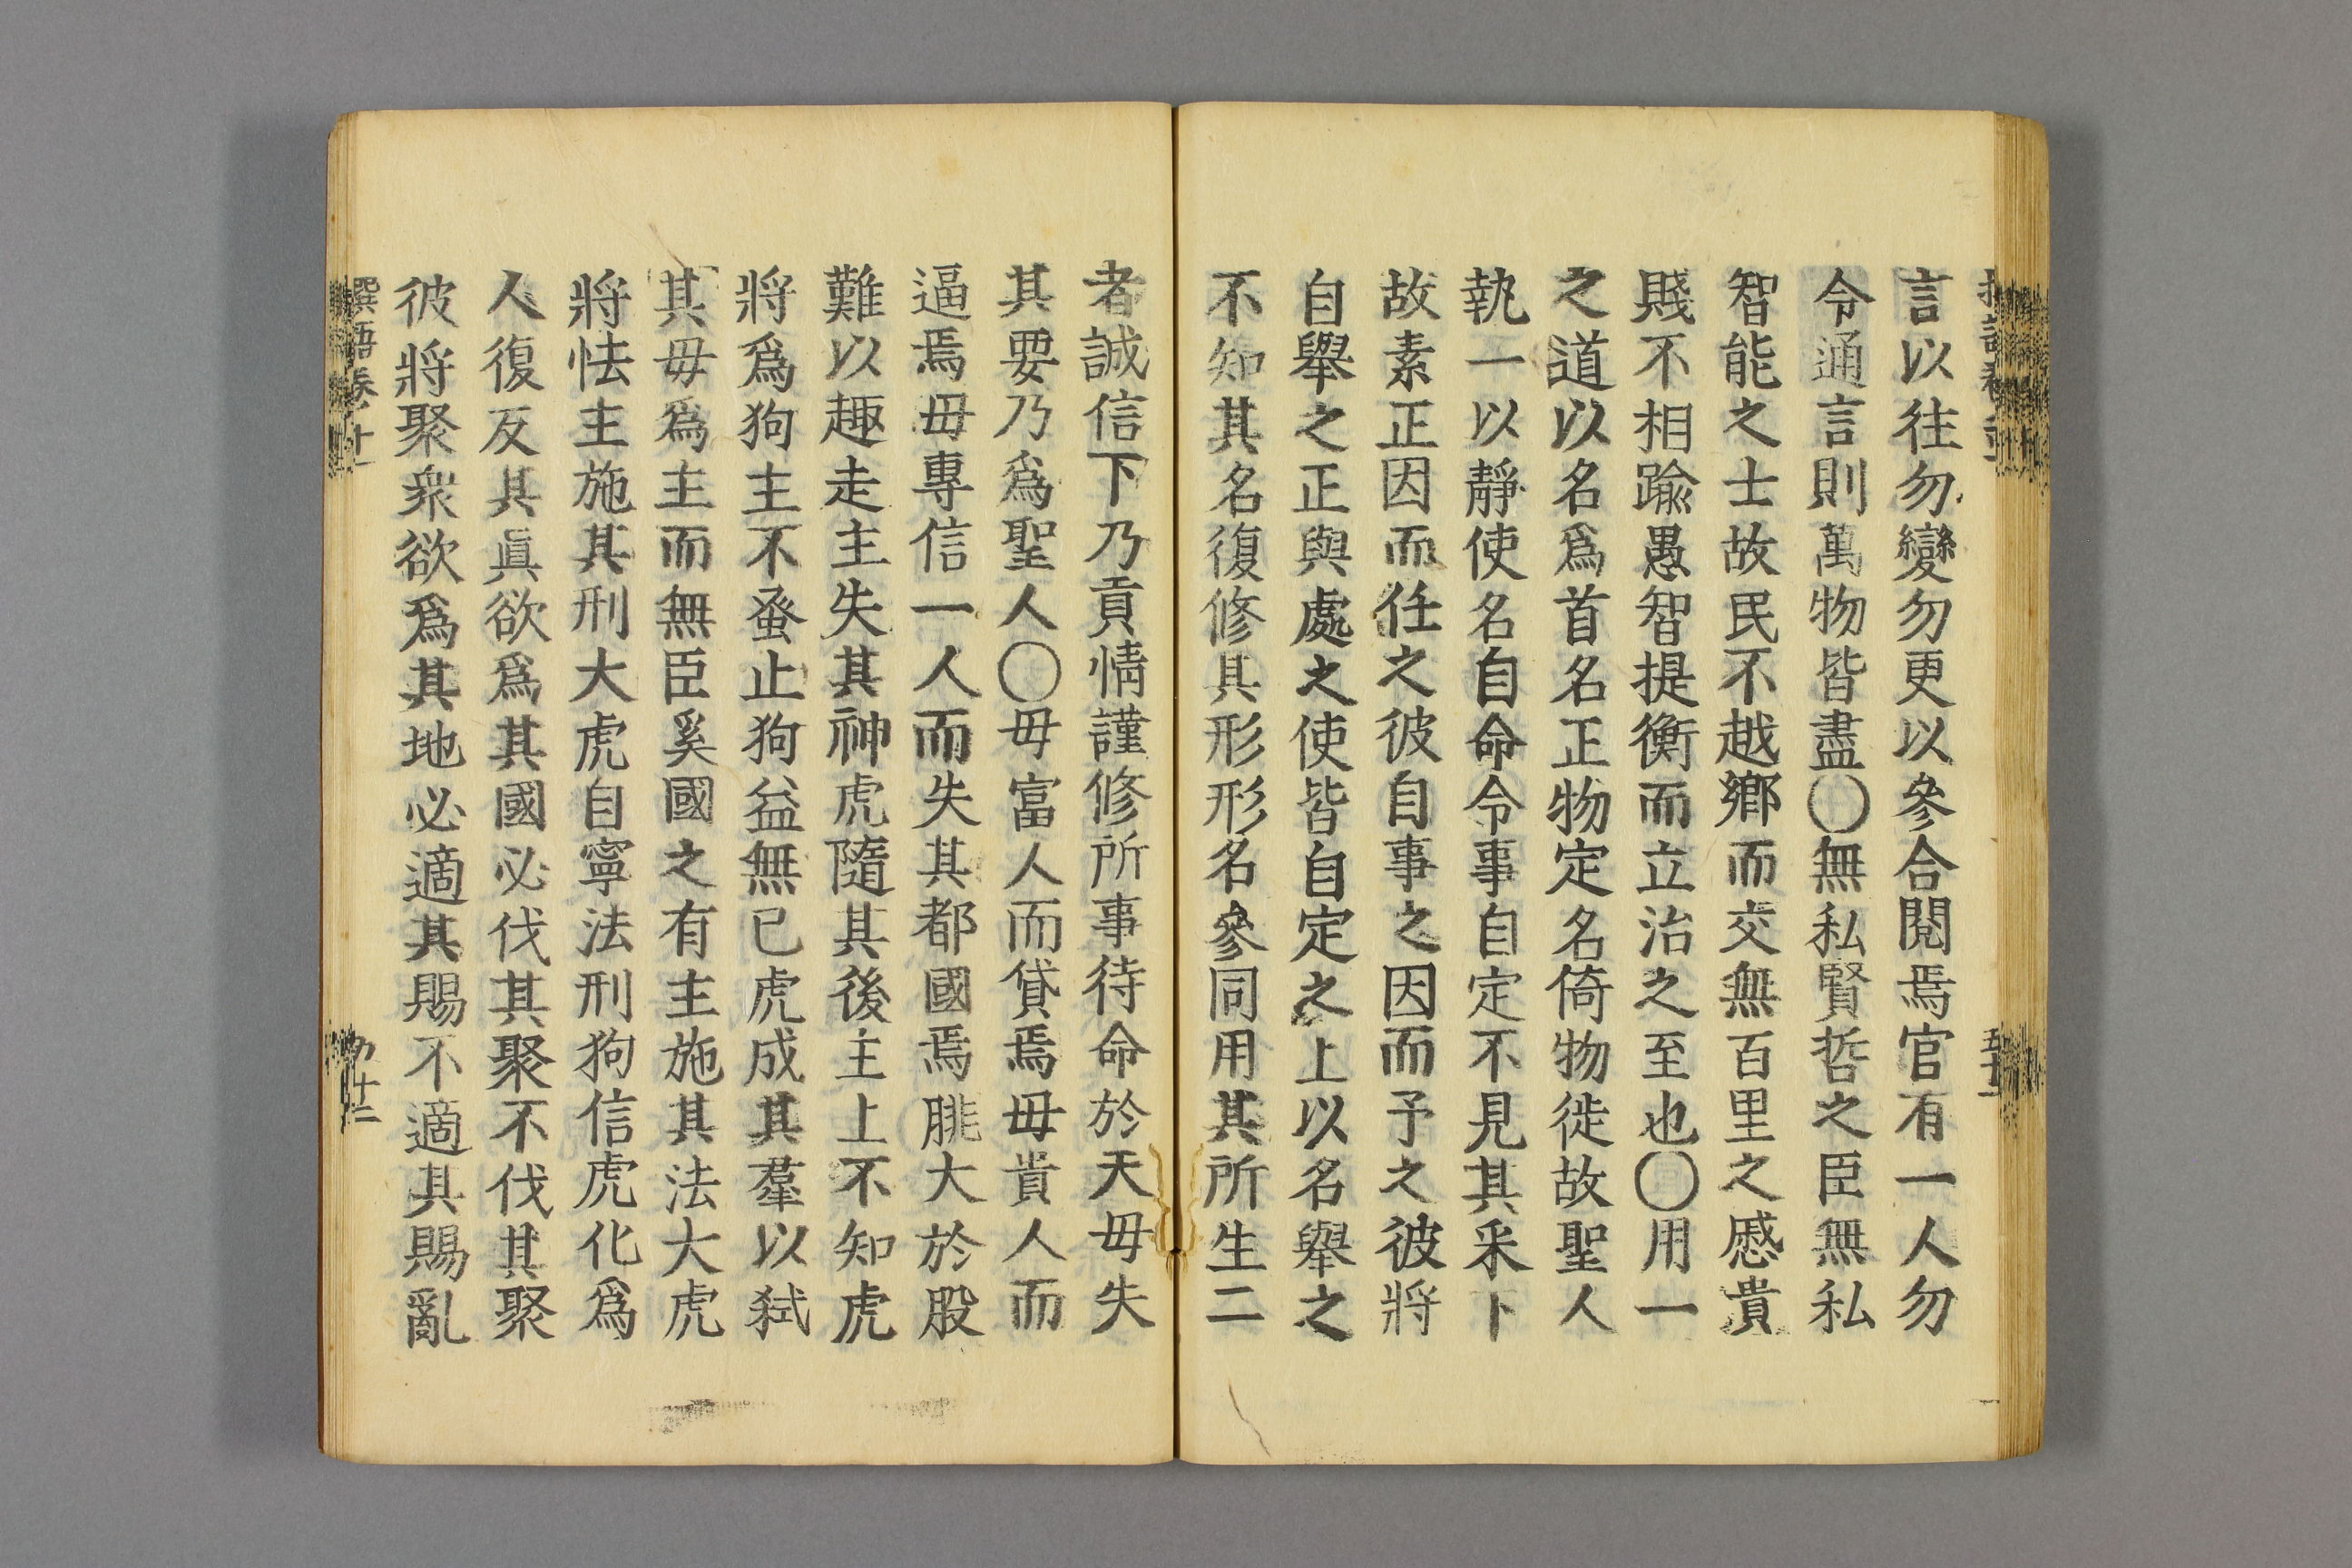 言以往勿變勿更以參合閱焉官有一人勿
令通言則萬物皆盡〇無私賢哲之臣無私
智能之士故民不越鄉而交無百里之慼貴
賤不相踰愚智提衡而立治之至也〇用一
之道以名爲首名正物定名倚物徙故聖人
執一以靜使名自命令事自定不見其釆卜
故素正因而任之彼自事之因而予之彼將
自舉之正與處之使皆自定之上以名舉之
不知其名復修其形形名參同用其所生二
者誠信下乃貢情謹修所事待命於天毋失
其要乃爲聖人〇毋富人而貸焉毋貴人而
逼焉毋專信一人而失其都國焉腓大於股
難以趣走主失其神虎隨其後主上不知虎
將爲狗主不蚤止狗益無已虎成其羣以弑
其毋爲主而無臣奚國之有主施其法大虎
將怯主施其刑大虎自寧法刑狗信虎化爲
人復反其眞欲爲其國必伐其聚不伐其聚
彼將聚衆欲爲其地必適其賜不適其賜亂
撰語卷十一
九十二